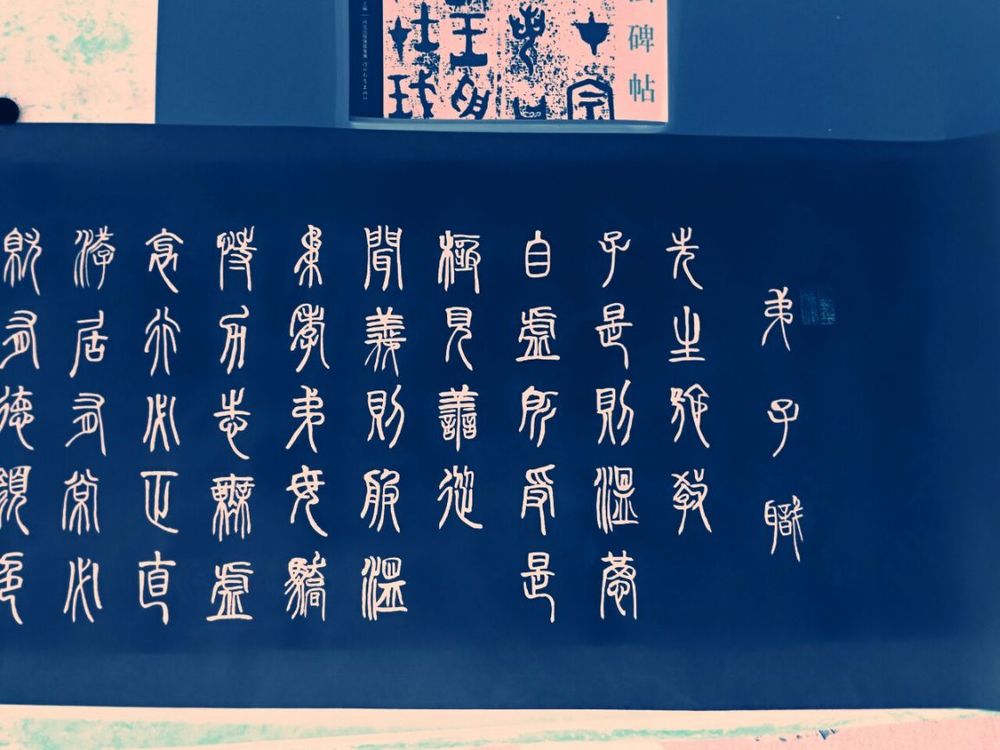 弟子職
先生施教
子是則溫恭
自虛所受是
極見善從
聞義則服溫
柔孝弟毋驕
恃力志無虛
衺行必正直
游居有常必
就有德顏色
碑帖